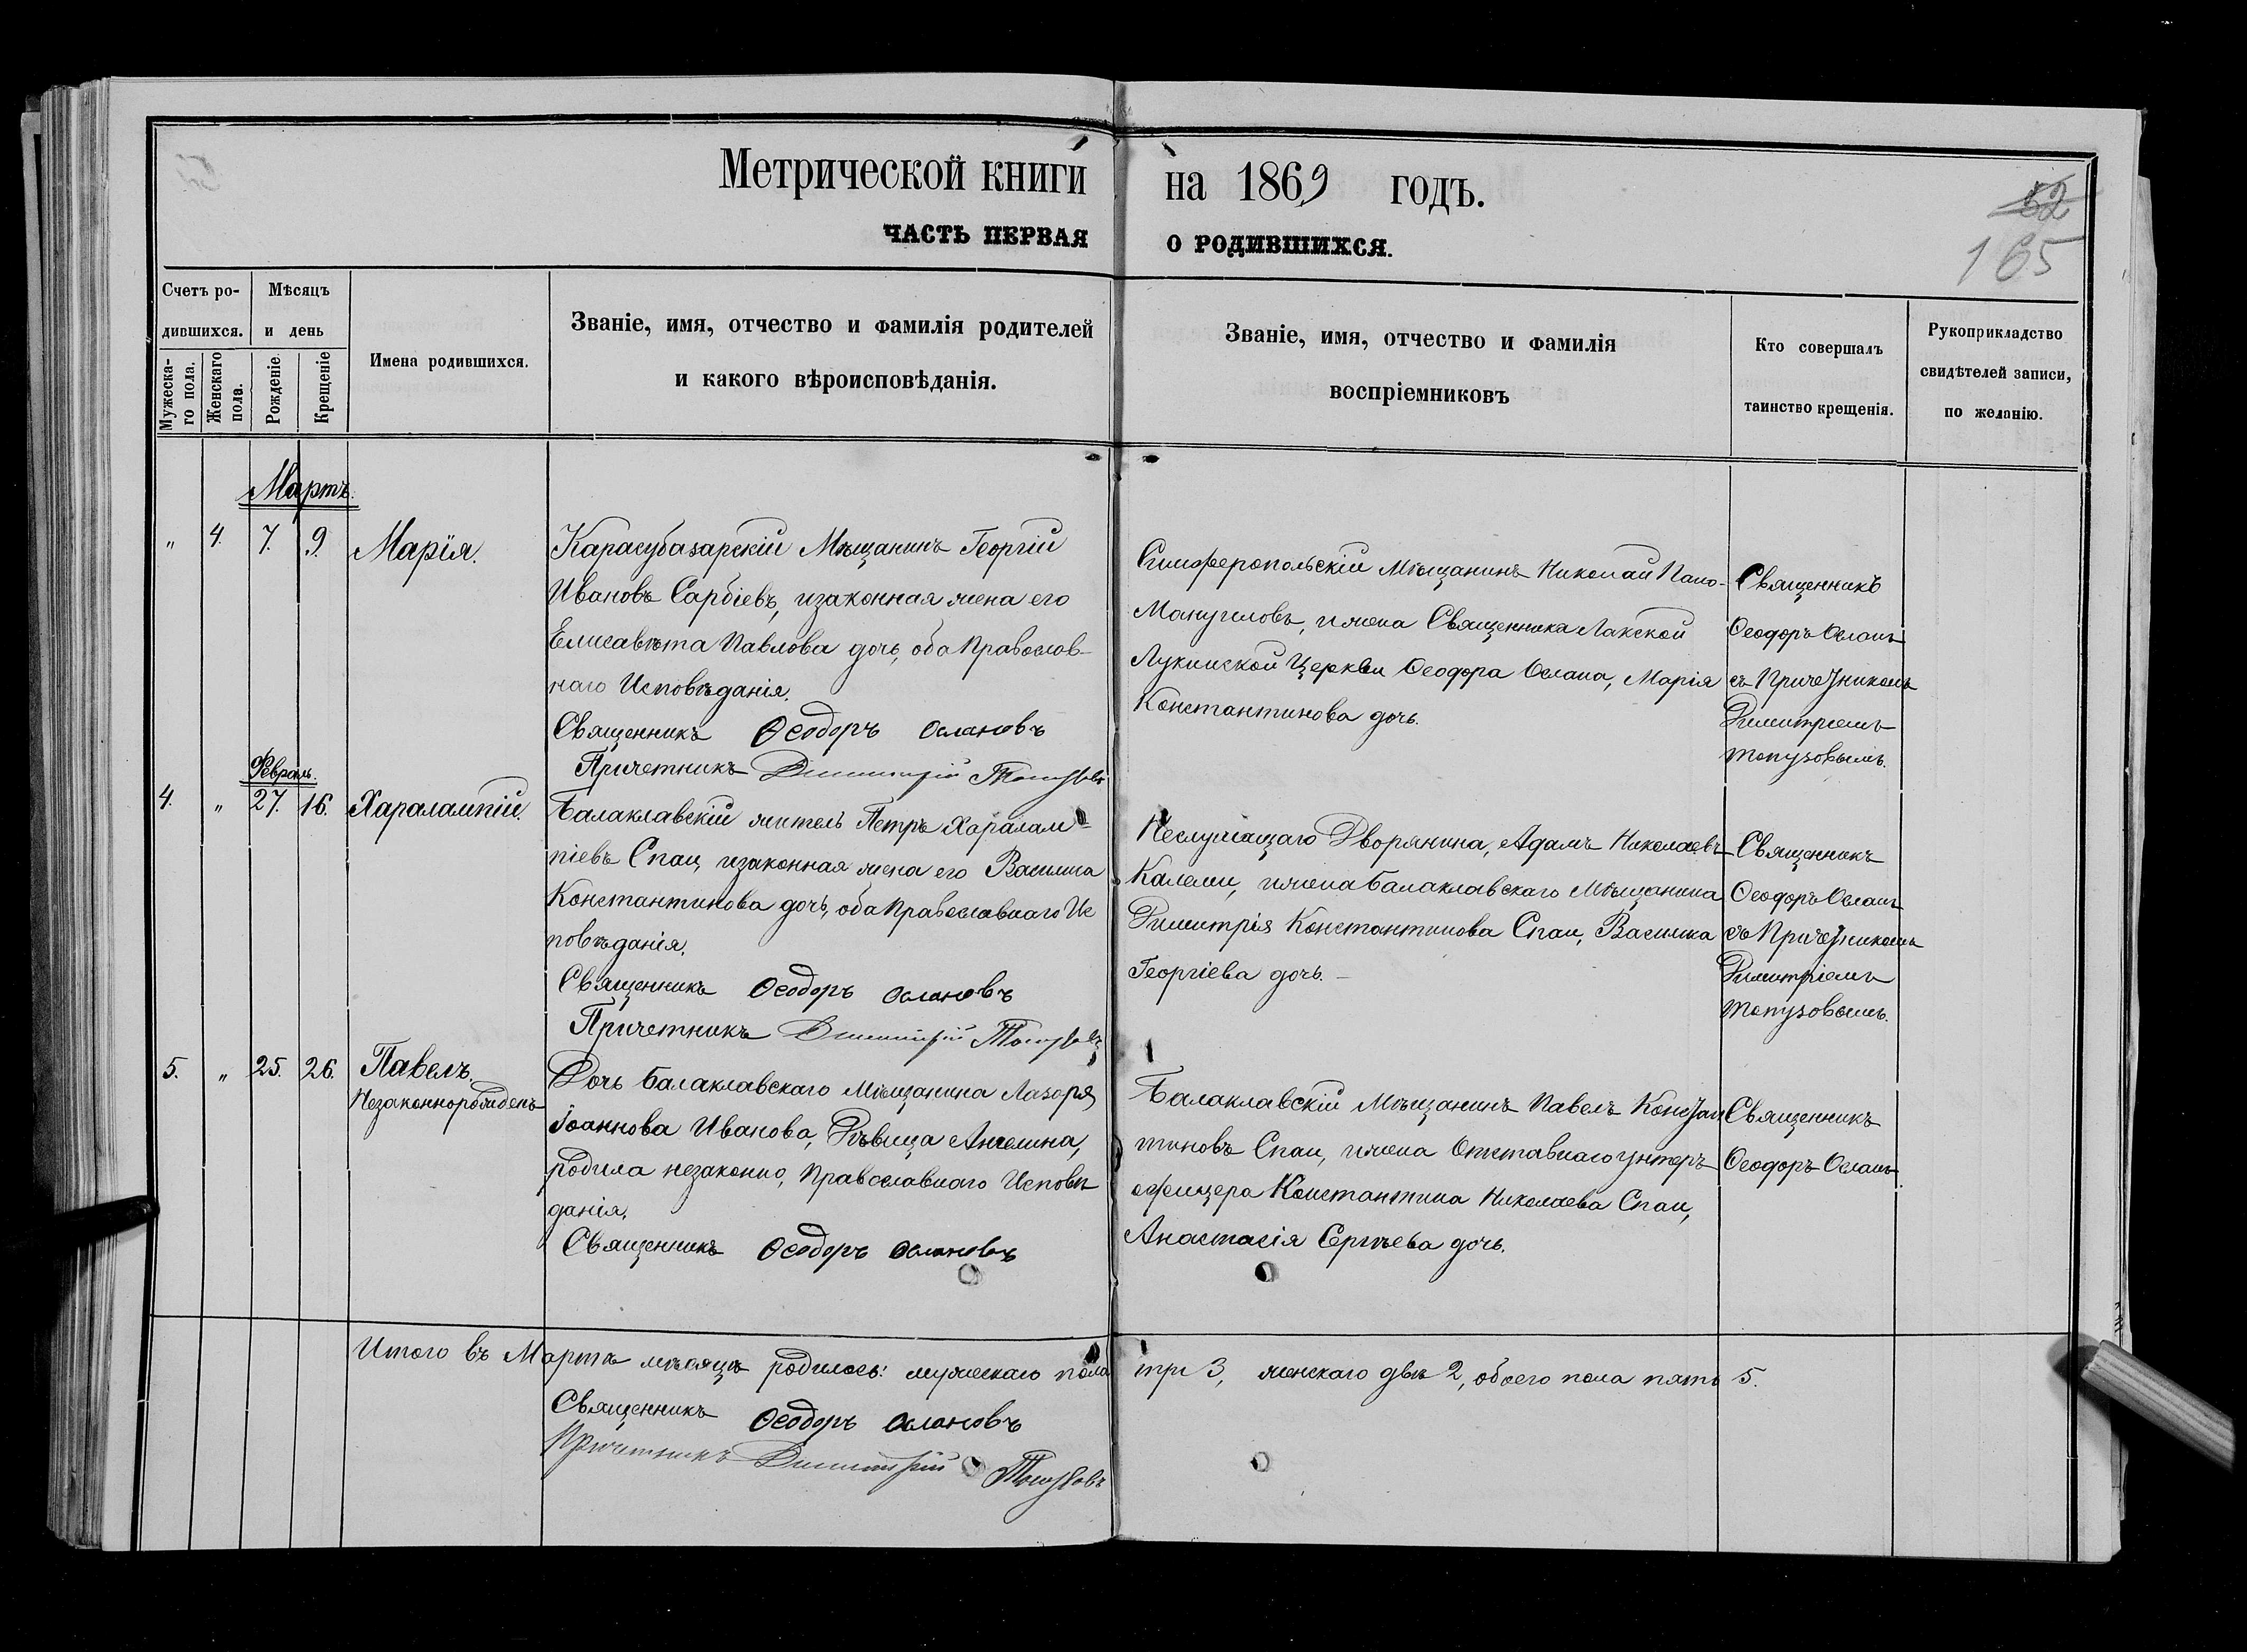 Метрической книги на 1869 годъ.
52
165
ЧАСТЬ ПЕРВАЯ О РОДИВШИХСЯ.
Счетъ ро-
дившихся.
Мужеска-
го пола.
Женскаго
пола.
Мѣсяцъ
и день
Рожденіе
Крещеніе
Имена родившихся.
Званіе, имя, отчество и фамилія родителей
и какого вѣроисповѣданія.
Званіе, имя, отчество и фамилія
воспріемниковъ
Кто совершалъ
таинство крещенія.
Рукоприкладство
свидѣтелей записи,
по желанію.
Мартъ.
" 4. 7. 9. Марія.
Карасубазарскій Мѣщанинъ Георгій
Ивановъ Сарбіевъ, изаконная жена его
Елисавѣта Павлова дочь, оба Православ-
наго Исповѣданія.
Священникъ Ѳеодоръ Ослановъ
Причетникъ Димитрій Топузовъ
Симферопольскій Мѣщанинъ Николай Папо-
Манугиловъ, ижена Священника Лакской
Лукинской Церкви Ѳеодора Ослана, Марія
Константинова дочь.
Священникъ
Ѳеодоръ Осланъ
съ Причетникомъ
Димитріемъ
Топузовымъ.
Февраль.
4. " 27. 16. Харалампій.
Балаклавскій житель Петръ Харалам-
піевъ Спаи, изаконная жена его Василика
Константинова дочь, оба Православнаго Ис
повѣданія.
Священникъ Ѳеодоръ Ослановъ
Причетникъ Димитрій Топузовъ
Неслужащаго Дворянина, Адамъ Николаевъ
Калеми, ижена Балаклавскаго Мѣщанина
Димитрія Константинова Спаи, Василика
Георгіева дочь.-
Священникъ
Ѳеодоръ Осланъ
съ Причетникомъ
Димитріемъ
Топузовымъ.
5. " 25. 26. Павелъ.
Незаконнорожденъ
Дочь Балаклавскаго Мѣщанина Лазоря
Іоаннова Иванова, Дѣвица Ангелина,
родила незаконно, Православнаго Исповѣ
данія.
Священникъ Ѳеодоръ Ослановъ
Балаклавскій Мѣщанинъ Павелъ Констан
тиновъ Спаи, ижена Отставнаго унтеръ
офицера Константина Николаева Спаи,
Анастасія Сергѣева дочь.
Священникъ
Ѳеодоръ Осланъ.
Итого въ Мартѣ мѣсяцѣ родилось: мужескаго пола три 3, женскаго двѣ 2, обоего пола пять 5.
Священникъ Ѳеодоръ Ослановъ
Причетникъ Димитрій Топузовъ